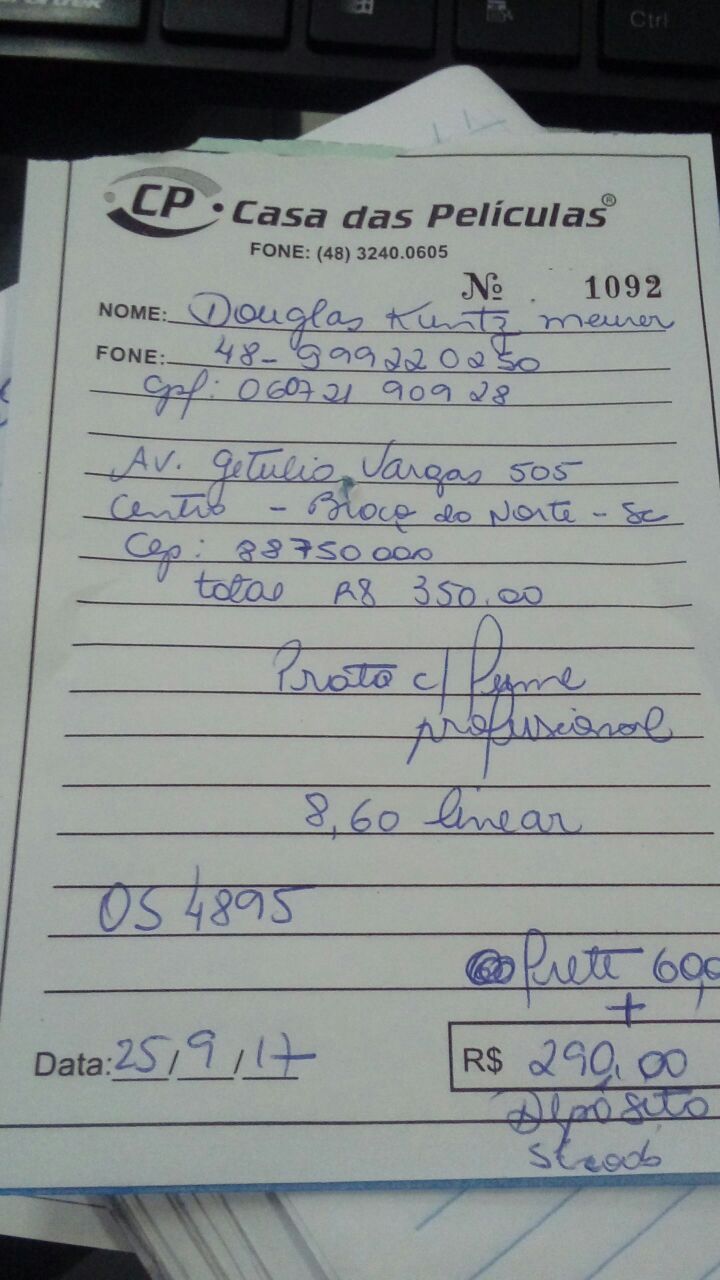 Ctrl
CP • Casa das Películas®
FONE: (48) 3240.0605
Nº. 1092
NOME: Douglas Kuntz meurer
FONE: 48-999220250
Cpf: 06072190928
Av. Getulio Vargas 505
Centro - Braço do Norte - SC
Cep: 88750000
total R$ 350.00
Prata c/
profissional
8,60 linear
OS 4895
frete 60,0
+
Data: 25/9/17
R$ 290,00
Depósito